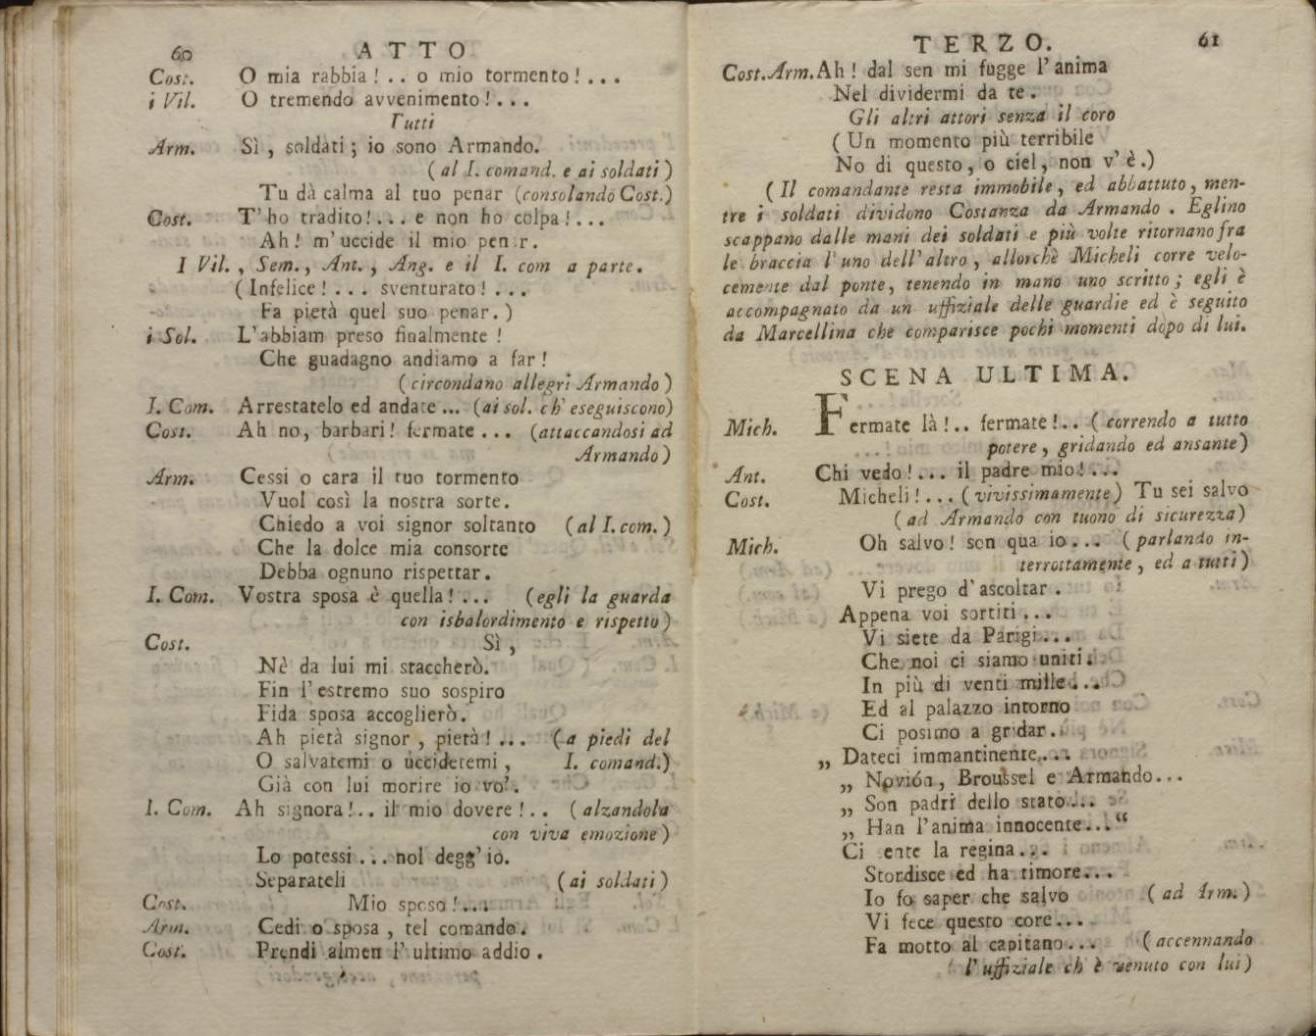 60 ATTO
Cost. O mia rabbia! .. o mio tormento! ...
i Vil. O tremendo avvenimento! ...
Tutti
Arm. Sì, soldati; io sono Armando.
(al I. comand. e ai soldati)
Tu dà calma al tuo penar (consolando Cost.)
Cost. T'ho tradito! ... e non ho colpa! ...
Ah! m'uccide il mio penar.
I Vil., Sem., Ant., Ang. e il I. com a parte.
(Infelice! ... sventurato! ...
Fa pietà quel suo penar.)
i Sol. L'abbiam preso finalmente!
Che guadagno andiamo a far!
(circondano allegri Armando)
I. Com. Arrestatelo ed andate ... (ai sol. ch'eseguiscono)
Cost. Ah no, barbari! fermate ... (attaccandosi ad
Armando)
Arm. Cessi o cara il tuo tormento
Vuol così la nostra sorte.
Chiedo a voi signor soltanto (al I. com.)
Che la dolce mia consorte
Debba ognuno rispettar.
I. Com. Vostra sposa è quella! ... (egli la guarda
con isbalordimento e rispetto)
Cost. Sì,
Nè da lui mi staccherò.
Fin l'estremo suo sospiro
Fida sposa accoglierò.
Ah pietà signor, pietà! ... (a piedi del
O salvatemi o uccidetemi, I. comand.)
Già con lui morire io vo'.
I. Com. Ah signora! .. il mio dovere! .. (alzandola
con viva emozione)
Lo potessi ... nol degg'io.
Separateli (ai soldati)
Cost. Mio sposo! ...
Arm. Cedi o sposa, tel comando.
Cost. Prendi almen l'ultimo addio.
TERZO. 61
Cost. Arm. Ah! dal sen mi fugge l'anima
Nel dividermi da te.
Gli altri attori senza il coro
(Un momento più terribile
No di questo, o ciel, non v'è.)
(Il comandante resta immobile, ed abbattuto, men-
tre i soldati dividono Costanza da Armando. Eglino
scappano dalle mani dei soldati e più volte ritornano fra
le braccia l'uno dell'altro, allorchè Micheli corre velo-
cemente dal ponte, tenendo in mano uno scritto; egli è
accompagnato da un uffiziale delle guardie ed è seguito
da Marcellina che comparisce pochi momenti dopo di lui.
SCENA ULTIMA.
Mich. Fermate là! .. fermate! .. (correndo a tutto
potere, gridando ed ansante)
Ant. Chi vedo! ... il padre mio! ...
Cost. Micheli! ... (vivissimamente) Tu sei salvo
(ad Armando con tuono di sicurezza)
Mich. Oh salvo! son qua io ... (parlando in-
terrottamente, ed a tutti)
Vi prego d'ascoltar.
Appena voi sortiti ...
Vi siete da Parigi ...
Che noi ci siamo uniti.
In più di venti mille ...
Ed al palazzo intorno
Ci posimo a gridar.
„ Dateci immantinente ...
„ Novión, Broussel e Armando ...
„ Son padri dello stato ...
„ Han l'anima innocente ... “
Ci sente la regina ...
Stordisce ed ha timore ...
Io fo saper che salvo (ad Arm.)
Vi fece questo core ...
Fa motto al capitano ... (accennando
l'uffiziale ch'è venuto con lui)